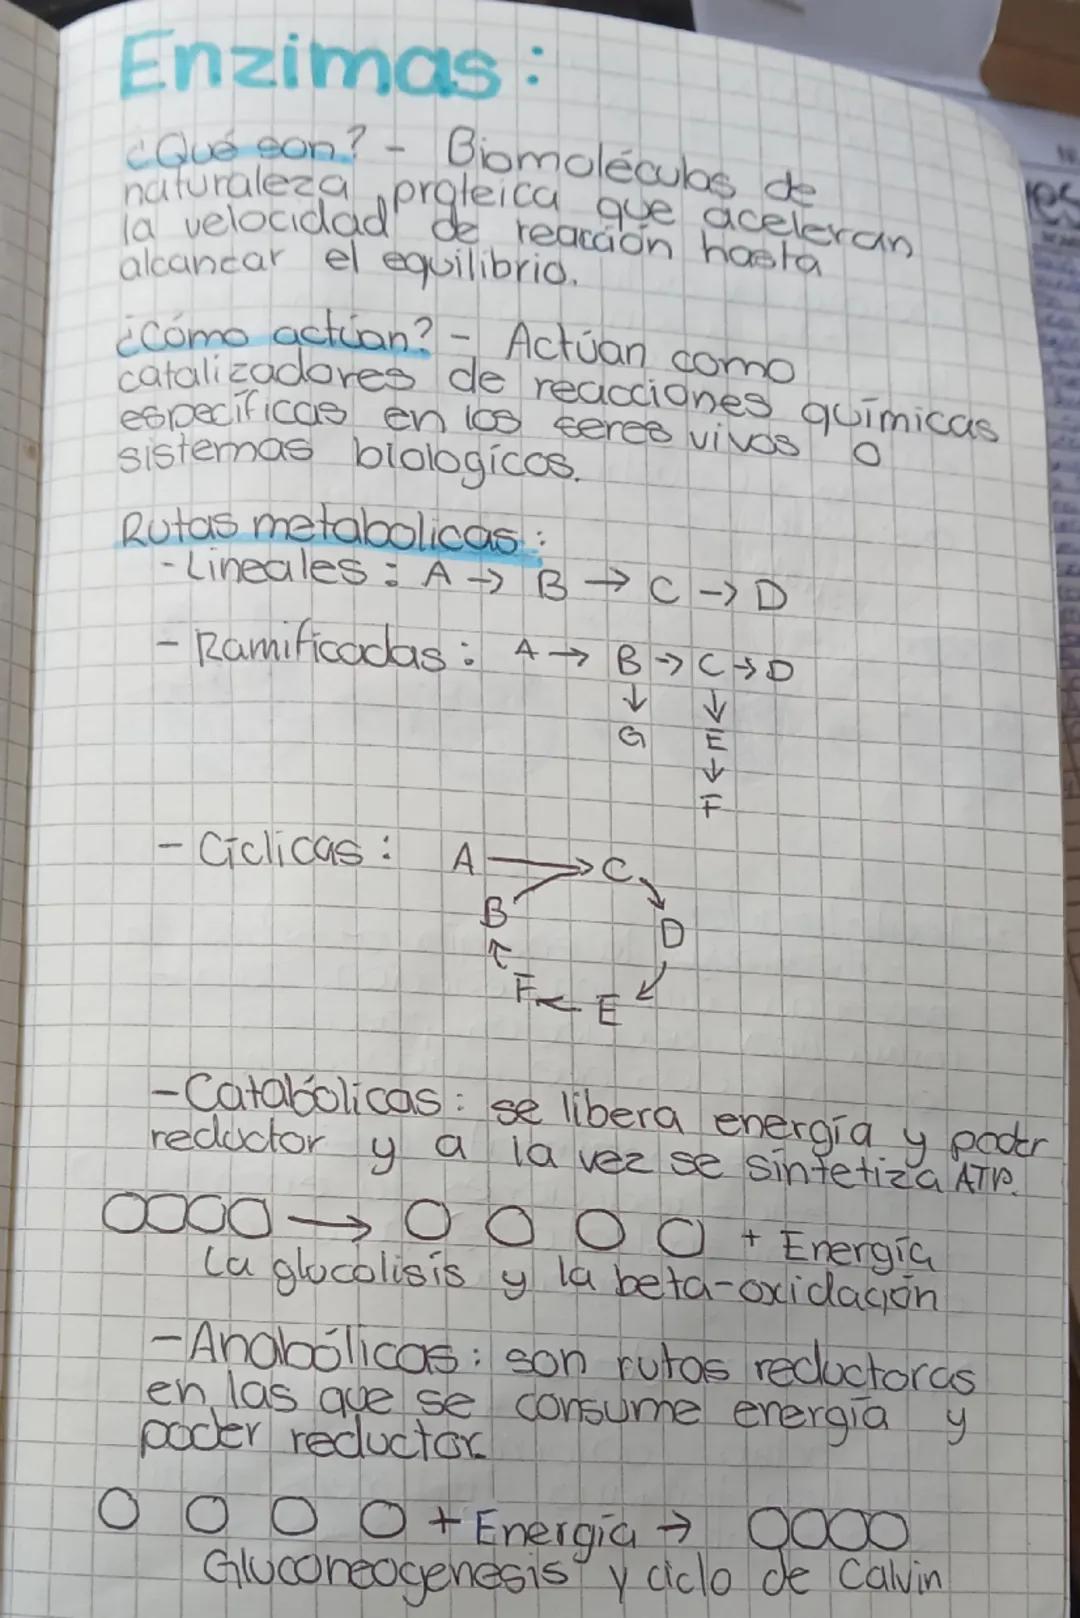 Enzimas:
¿Qué son? - Biomoléculas de
naturaleza proteica que aceleran
la velocidad de reacción hasta
alcanzar el equilibrio.
¿Cómo actúan? - Actúan como
catalizadores de reacciones químicas
específicas en los seres vivos o
sistemas biologícos.
Rutas metabolicas:
- Lineales: A → B → C → D
- Ramificadas: A → B → C → D
↓ ↓
G E
↓
F
- Cíclicas: A → C
B D
F ← E
- Catabólicas: se libera energía y poder
reductor y a la vez se sintetiza ATP.
OOOO → O O O O + Energía
La glucolisís y la beta-oxidación
- Anabólicas: son rutas reductoras
en las que se consume energía y
poder reductor
O O O O + Energía → OOOO
Gluconeogenesis y ciclo de Calvin